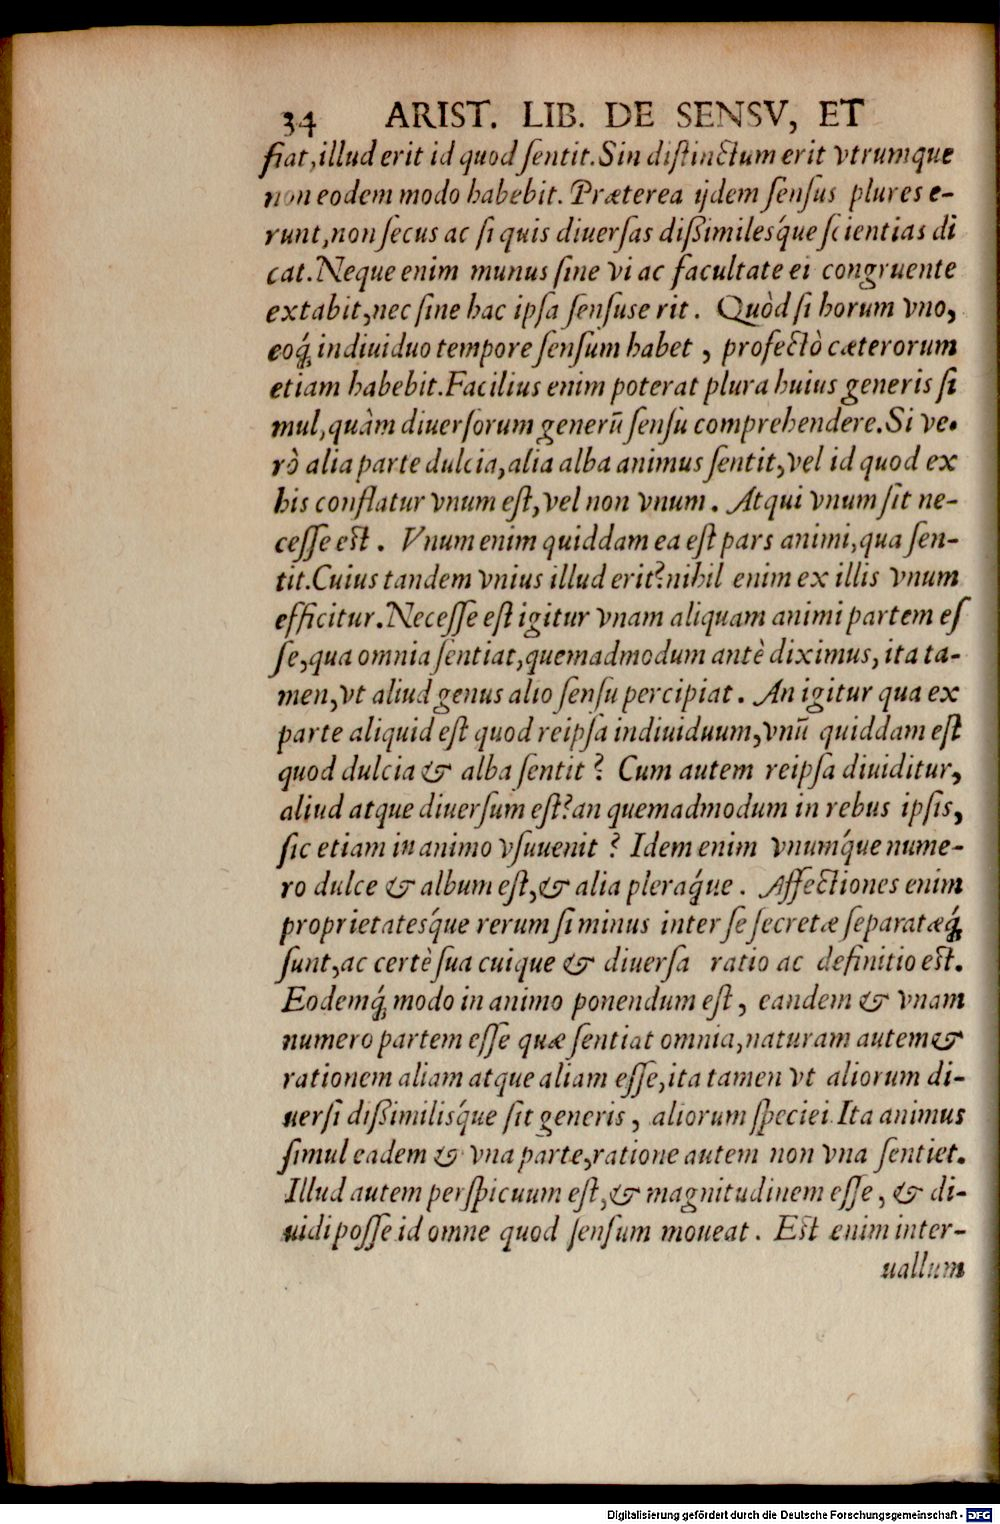 34 ARIST. LIB. DE SENSV, ET
fiat, illud erit id quod ſentit. Sin diſtinctum erit vtrumque
non eodem modo habebit. Præterea ijdem ſenſus plures e-
runt, non ſecus ac ſi quis diuerſas dißimilesq́ue ſcientias di
cat. Neque enim munus ſine vi ac facultate ei congruente
extabit, nec ſine hac ipſa ſenſuse rit. Quòd ſi horum vno,
eoq́; indiuiduo tempore ſenſum habet, profectò cæterorum
etiam habebit. Facilius enim poterat plura huius generis ſi
mul, quàm diuerſorum generū ſenſu comprehendere. Si ve-
rò alia parte dulcia, alia alba animus ſentit, vel id quod ex
his conflatur vnum eſt, vel non vnum. Atqui vnum ſit ne-
ceſſe est. Vnum enim quiddam ea eſt pars animi, qua ſen-
tit. Cuius tandem vnius illud erit? nihil enim ex illis vnum
efficitur. Neceſſe eſt igitur vnam aliquam animi partem eſ
ſe, qua omnia ſentiat, quemadmodum antè diximus, ita ta-
men, vt aliud genus alio ſenſu percipiat. An igitur qua ex
parte aliquid eſt quod reipſa indiuiduum, vnū quiddam eſt
quod dulcia & alba ſentit? Cum autem reipſa diuiditur,
aliud atque diuerſum eſt? an quemadmodum in rebus ipſis,
ſic etiam in animo vſuuenit? Idem enim vnumq́ue nume-
ro dulce & album eſt, & alia pleraq́ue. Affectiones enim
proprietatesq́ue rerum ſi minus inter ſe ſecretæ ſeparatæq́;
ſunt, ac certè ſua cuique & diuerſa ratio ac definitio est.
Eodemq́; modo in animo ponendum eſt, eandem & vnam
numero partem eſſe quæ ſentiat omnia, naturam autem &
rationem aliam atque aliam eſſe, ita tamen vt aliorum di-
uerſi dißimilisq́ue ſit generis, aliorum ſpeciei. Ita animus
ſimul eadem & vna parte, ratione autem non vna ſentiet.
Illud autem perſpicuum eſt, & magnitudinem eſſe, & di-
uidi poſſe id omne quod ſenſum moueat. Est enim inter-
uallum
Digitalisierung gefördert durch die Deutsche Forschungsgemeinschaft - DFG